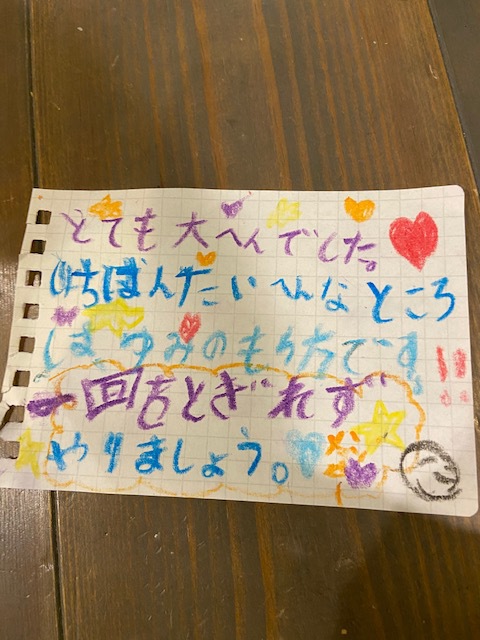 とても大へんでした。
いちばんたいへんなところ
は ゆみのもち方です。!!
一回をとぎれず
やりましょう。